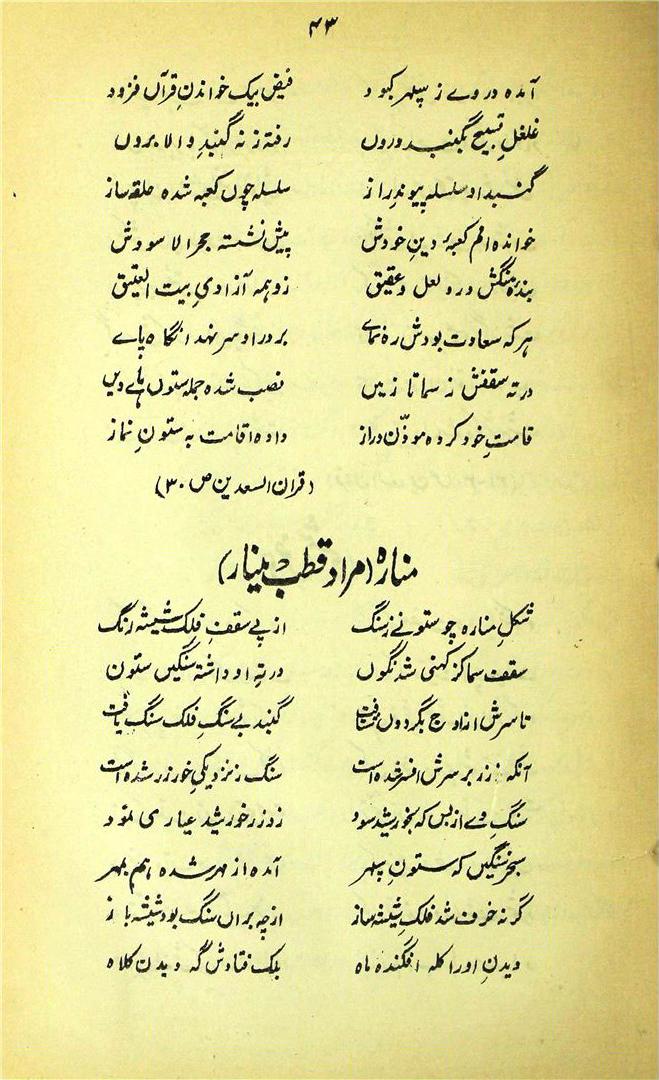 ۴۳
آمده در وے ز سپہر کبود فیض بیک خواندنِ قرآں فزود
غلغلِ تسبیح بگنبد دروں رفتہ ز نہ گنبدِ والا بروں
گنبد او سلسلہ پیوندِ راز سلسلہ چوں کعبہ شدہ حلقہ ساز
خواندہ امم کعبۂ دینِ خودش پیش نشستہ حجر الاسودش
بندہ سنگش در و لعل و عقیق زو ہمہ آزادیِ بیت العتیق
ہر کہ سعادت بودش رہ نماے بر در او سر نہد آنگاہ پاے
در تہ سقفش ز سما تا زمیں نصب شدہ جملہ ستوں ہاے دیں
قامتِ خود کردہ موذّن دراز دادہ اقامت بہ ستونِ نماز
(قران السعدین ص ۳۰)
منارہ (مراد قطب مینار)
شکلِ منارہ چو ستونے ز سنگ از پے سقفِ فلکِ شیشہ رنگ
سقفِ سما کز کہنی شد نگوں در تہِ او داشتہ سنگیں ستون
تا سرش از اوج بگردوں شتافت گنبد بے سنگِ فلک سنگ یافت
آنکہ ز زر بر سرش افسر شدہ است سنگ ز نزدیکیِ خور زر شدہ است
سنگِ وے از بس کہ بخورشید سود زو زرِ خورشید عیاری نمود
سنگیں کہ ستونِ سپہر آمدہ از مہر شدہ ہم بمہر
گر نہ خرف شد فلکِ شیشہ ساز ازچہ براں سنگ بود شیشہ باز
دیدنِ او را کلہ افگندہ ماہ بلک فتادش گہ دیدن کلاہ